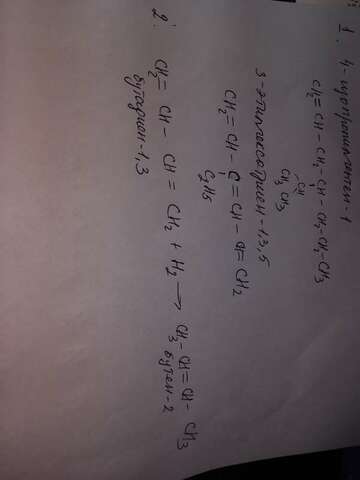 1. 4-изопропилгептен-1
CH2=CH-CH2-CH-CH2-CH2-CH3
CH
CH3 CH3
3-этилгексатриен-1,3,5
CH2=CH-C=CH-CH=CH2
C2H5
2. CH2=CH-CH=CH2+H2→CH3-CH=CH-CH3
бутадиен-1,3 бутен-2